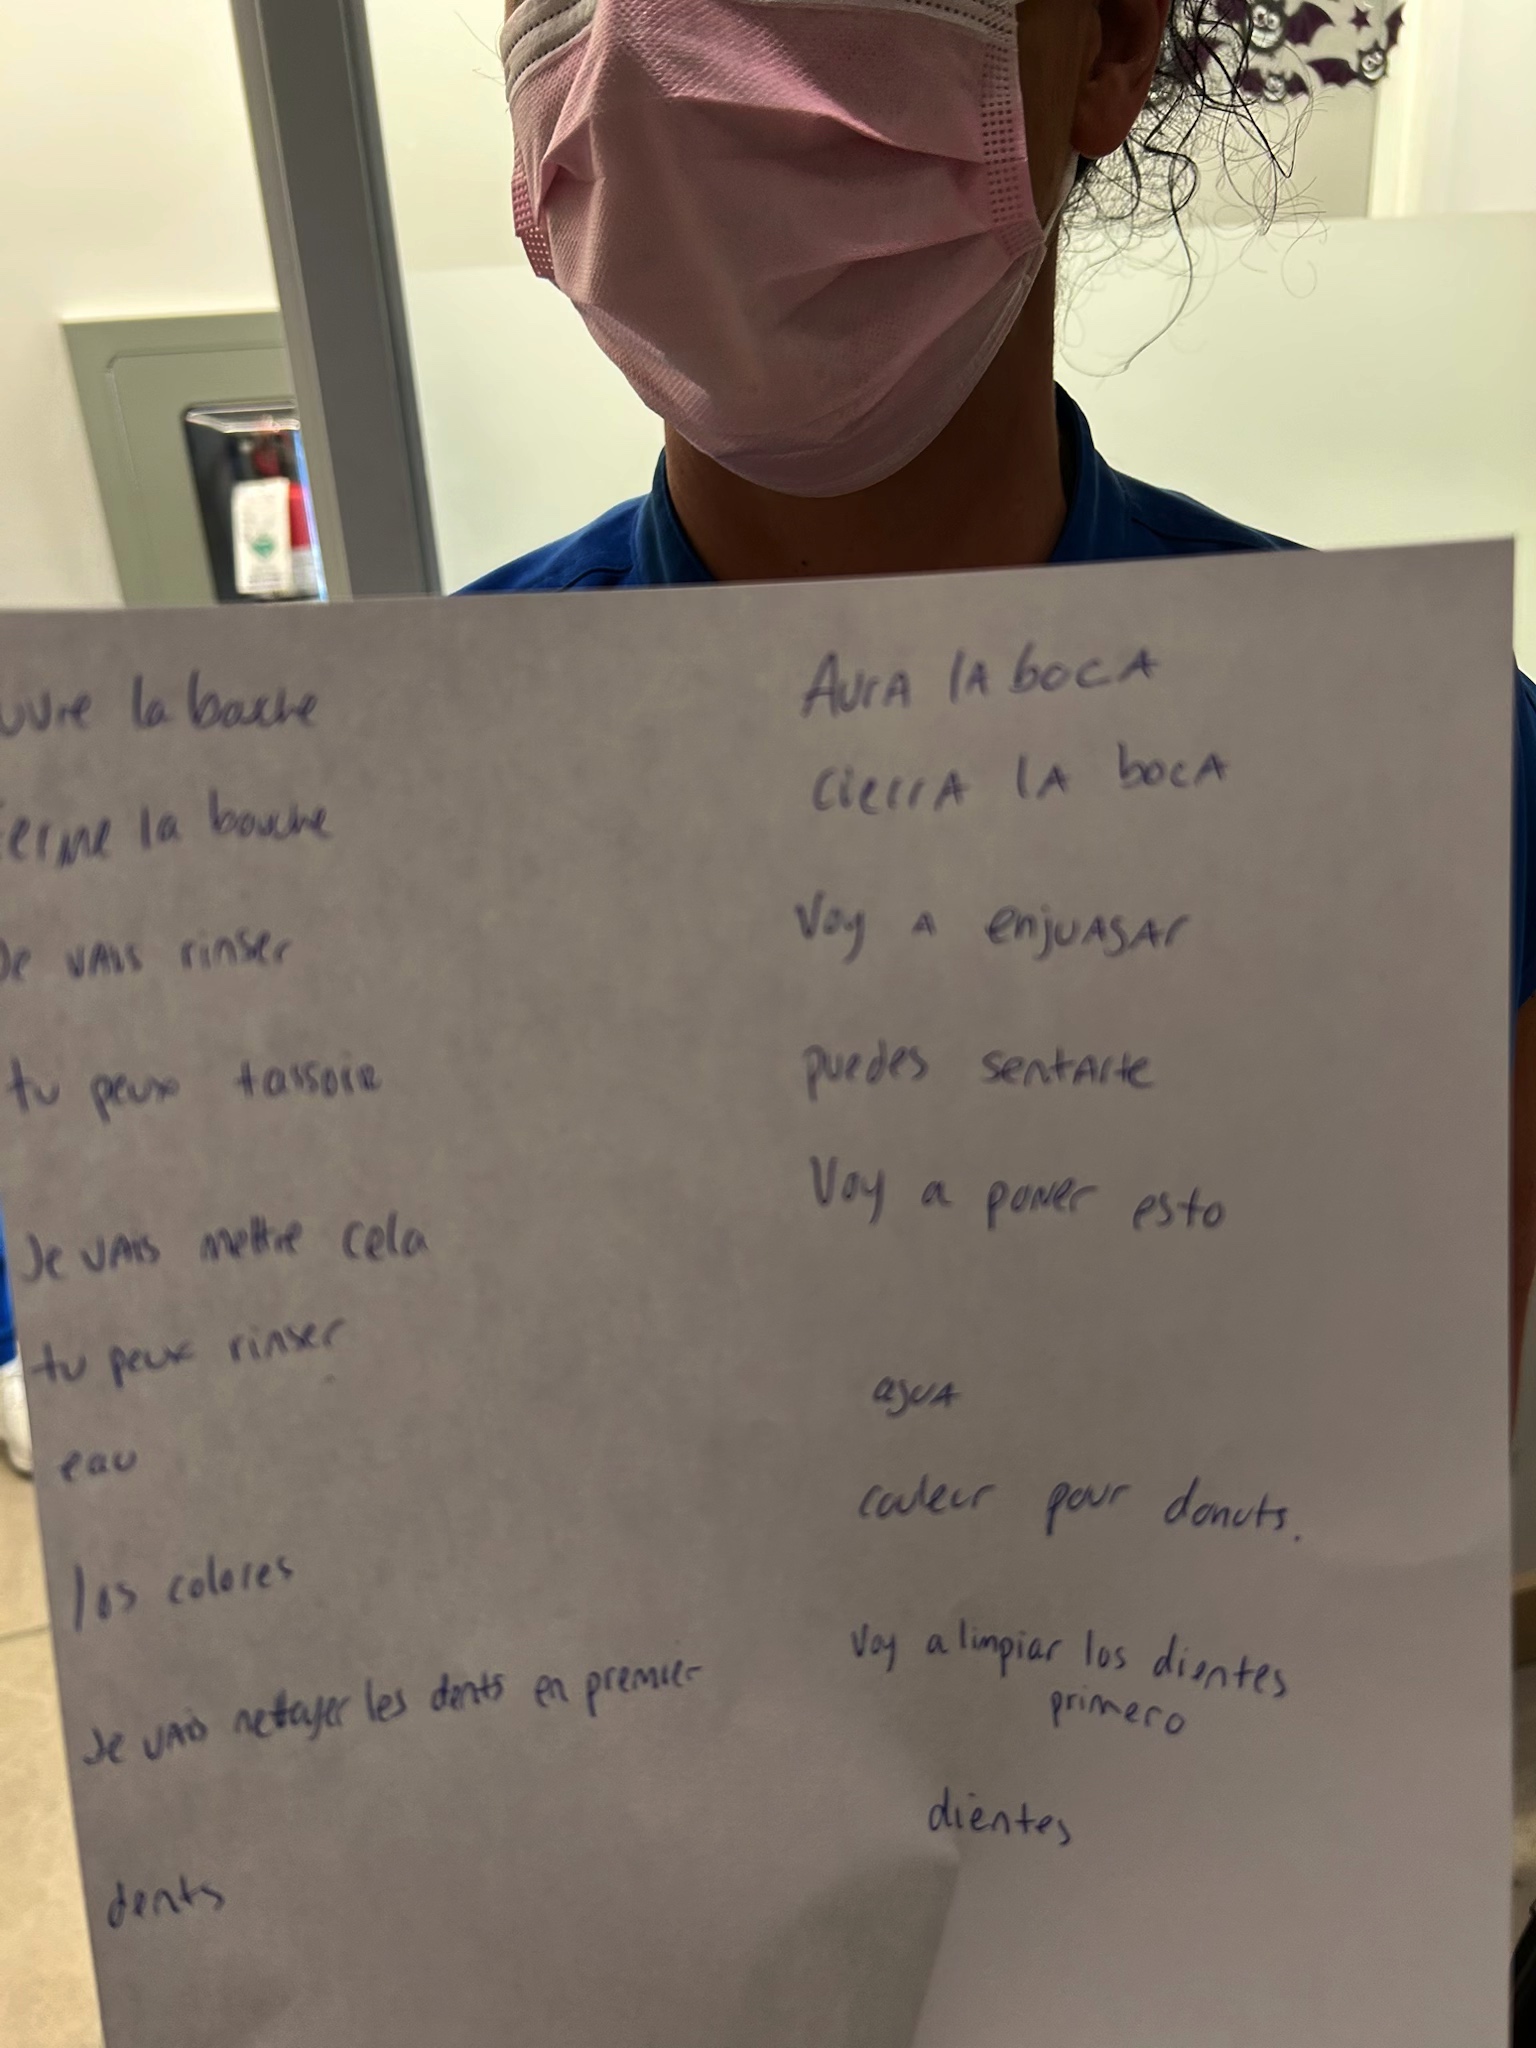 uvre la bouche
ferme la bouche
Je vais rinser
tu peux tassoir
Je vais mettre cela
tu peux rinser
eau
los colores
Je vais nettayer les dents en premier
dents
Aura la boca
cierra la boca
Voy a enjuagar
puedes sentarte
Voy a poner esto
agua
couleur pour donuts.
Voy a limpiar los dientes
primero
dientes